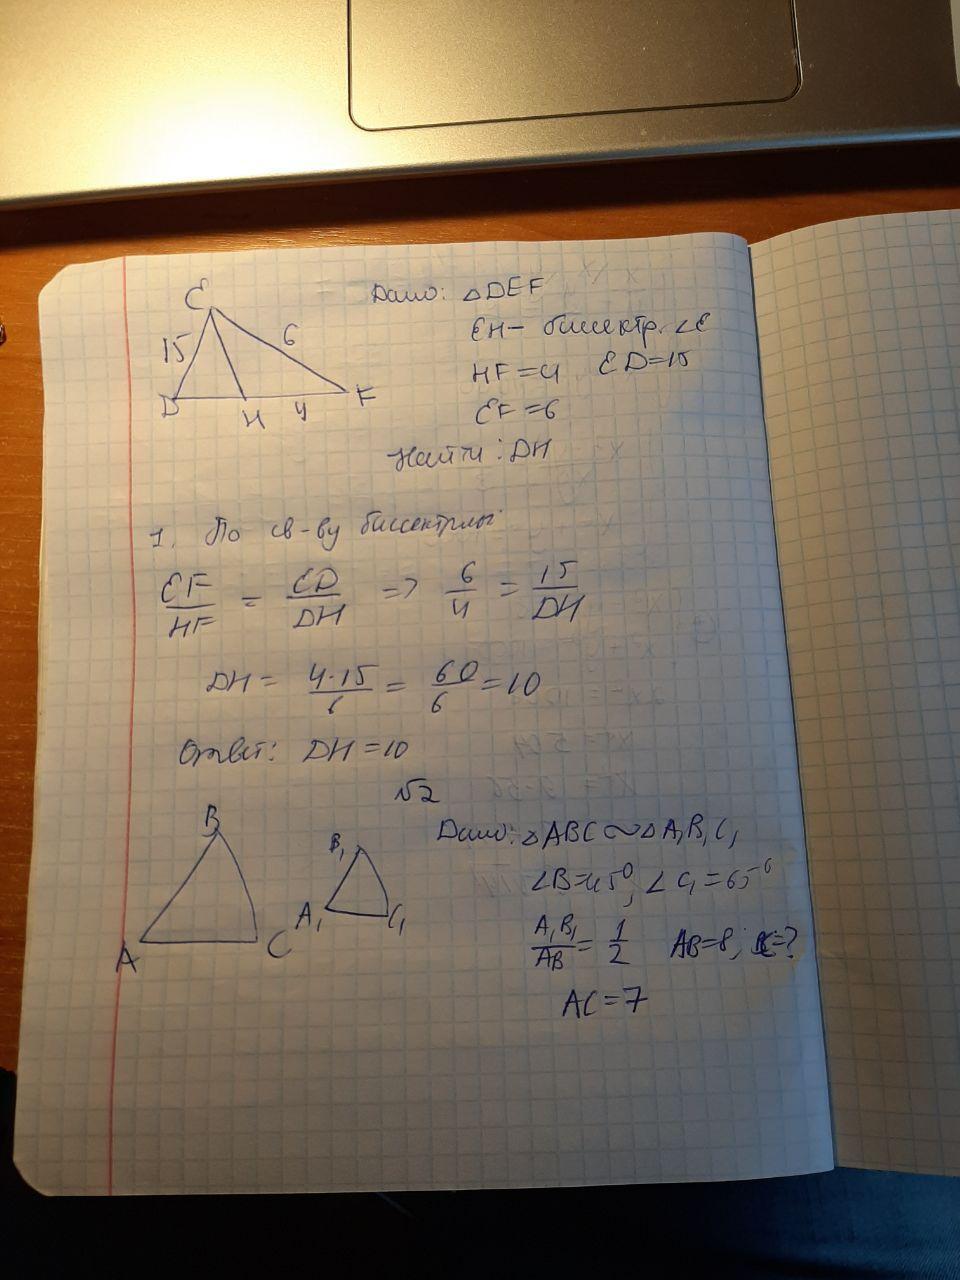 E
15
6
D
H
4
F
Дано: △DEF
EH – биссектр. ∠E
HF = 4 ED = 15
EF = 6
Найти: DH
1. По св-ву биссектрисы
EF/HF = ED/DH => 6/4 = 15/DH
DH = 4·15/6 = 60/6 = 10
Ответ: DH = 10
√2
B
A
C
B₁
A₁
C₁
Дано: △ABC ~ △A₁B₁C₁
∠B = 45°, ∠C₁ = 65°
A₁B₁/AB = 1/2 AB = 8; =?
AC = 7